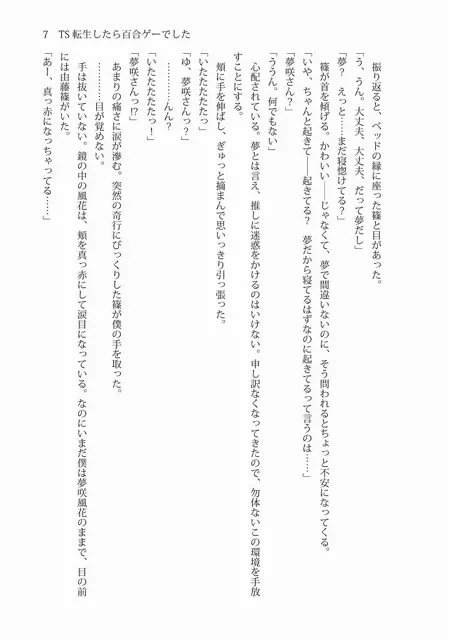 7　TS転生したら百合ゲーでした
振り返ると、ベッドの縁に座った篠と目があった。
「う、うん。大丈夫、大丈夫、だって夢だし」
「夢？　えっと……まだ寝惚けてる？」
篠が首を傾げる。かわいい――じゃなくて、夢で間違いないのに、そう問われるとちょっと不安になってくる。
「いや、ちゃんと起きて――起きてる？　夢だから寝てるはずなのに起きてるって言うのは……」
「夢咲さん？」
「ううん。何でもない」
心配されている。夢とは言え、推しに迷惑をかけるのはいけない。申し訳なくなってきたので、勿体ないこの環境を手放
すことにする。
頬に手を伸ばし、ぎゅっと摘まんで思いっきり引っ張った。
「いたたたたたっ」
「ゆ、夢咲さんっ？」
…………んん？
「いたたたたたっ！」
「夢咲さんっ!?」
あまりの痛さに涙が滲む。突然の奇行にびっくりした篠が僕の手を取った。
…………目が覚めない。
手は抜いていない。鏡の中の風花は、頬を真っ赤にして涙目になっている。なのにいまだ僕は夢咲風花のままで、目の前
には由藤篠がいた。
「あー、真っ赤になっちゃってる……」